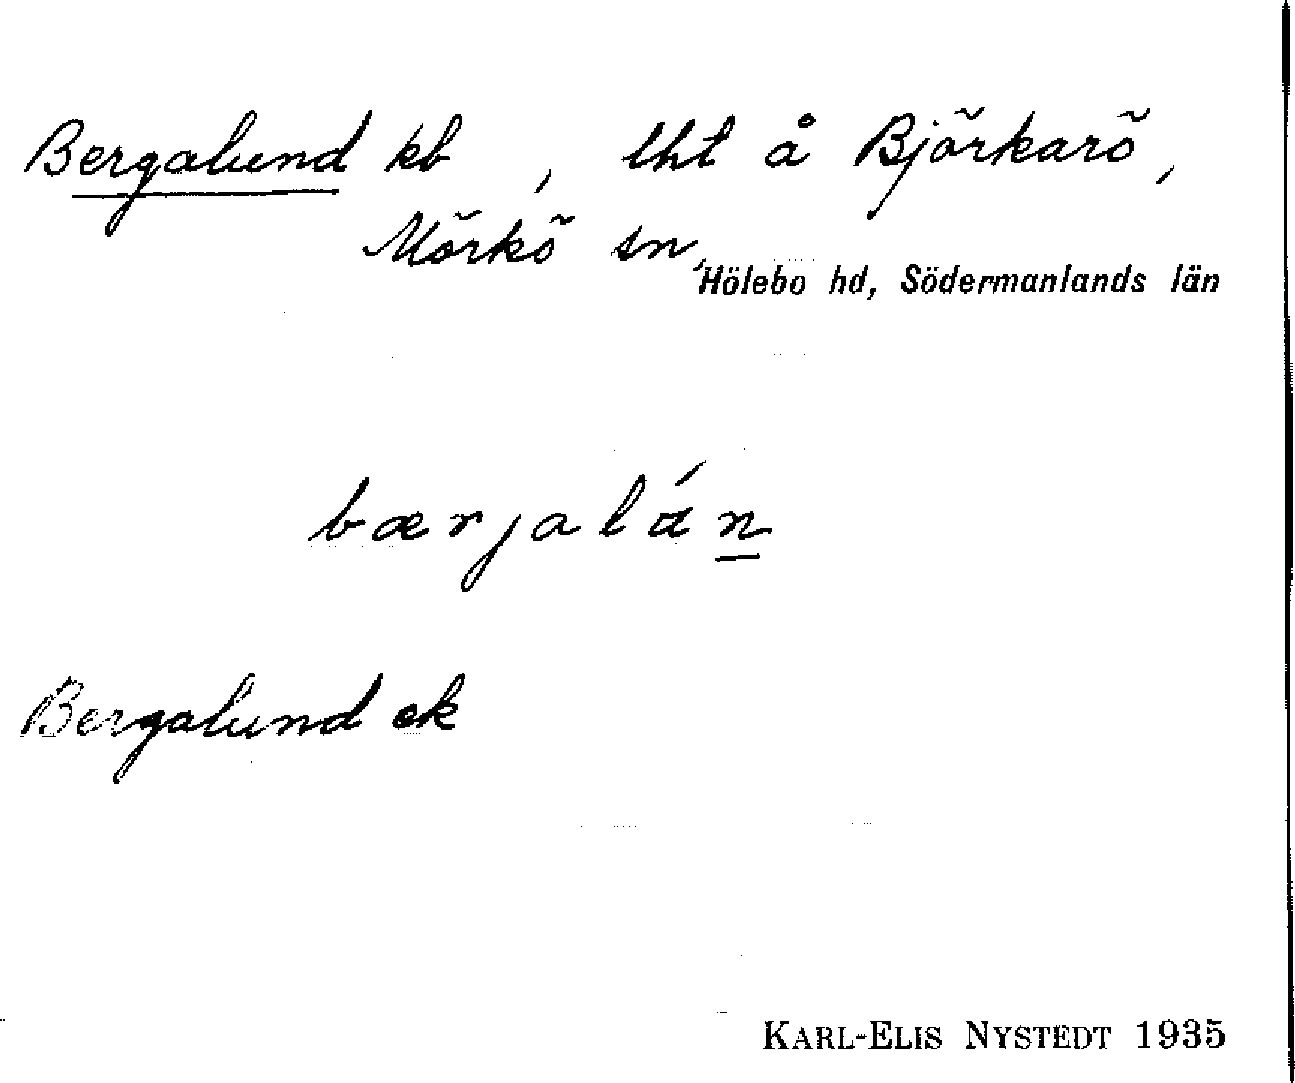 Bergalund kb, lht å Björkarö,
Mörkö sn,
Hölebo hd, Södermanlands län
bærjalán
Bergalund ek
KARL-ELIS NYSTEDT 1935